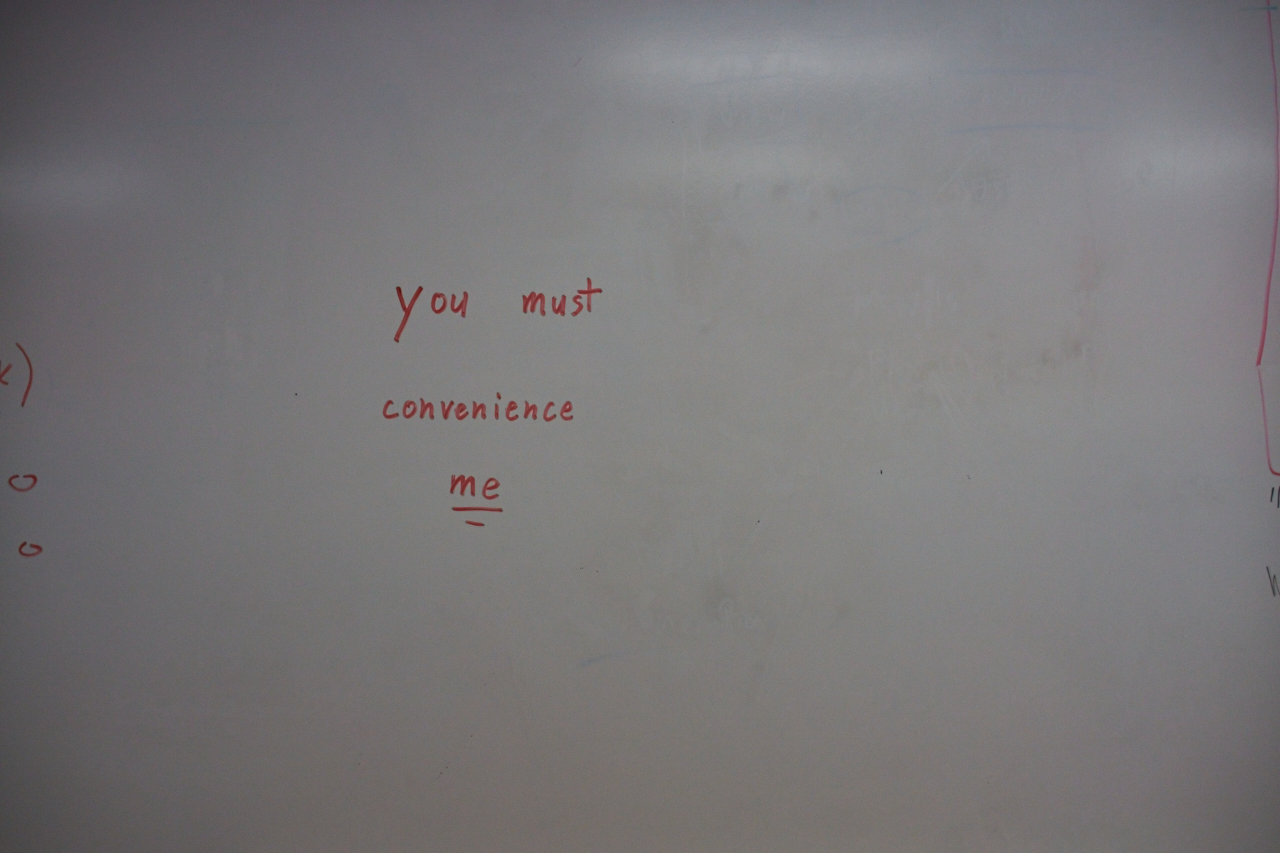 you must
convenience
me